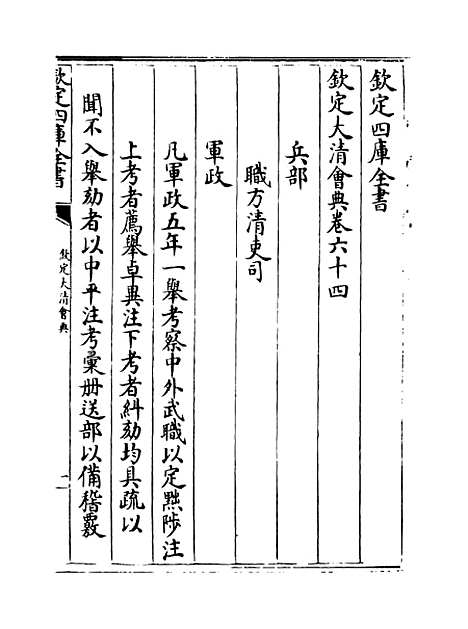 欽定四庫全書
欽定大清會典卷六十四
兵部
職方清吏司
軍政
凡軍政五年一舉考察中外武職以定黜陟注
上考者薦舉卓異注下考者糾劾均具疏以
聞不入舉劾者以中平注考彙册送部以備稽覈
欽定四庫全書
欽定大清會典